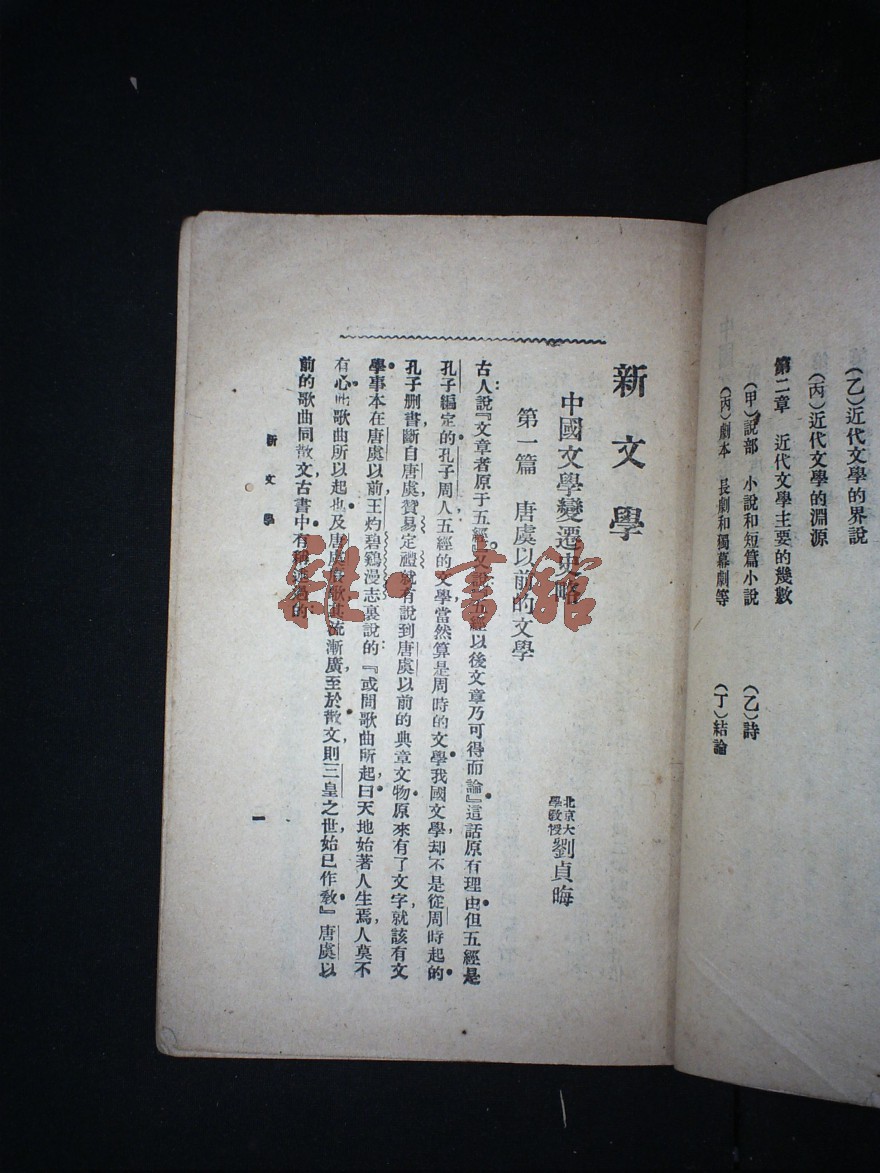 (乙)近代文學的界說
(丙)近代文學的淵源
第二章 近代文學主要的幾數
(甲)說部 小說和短篇小說 (乙)詩
(丙)劇本 長劇和獨幕劇等 (丁)結論
新文學
中國文學變遷史略
北京大學教授 劉貞晦
第一篇 唐虞以前的文學
古人說:『文章者原于五經』又說『五經以後文章乃可得而論』這話原有理由但五經是
孔子編定的孔子周人五經的文學當然算是周時的文學我國文學却不是從周時起的
孔子刪書斷自唐虞贊易定禮就有說到唐虞以前的典章文物原來有了文字就該有文
學事本在唐虞以前王灼碧鷄漫志裏說的:『或問歌曲所起曰天地始著人生焉人莫不
有心此歌曲所以起也及唐虞賡歌其流漸廣至於散文則三皇之世始已作教』唐虞以
前的歌曲同散文古書中有稱述過的
新文學
一
雜·書館